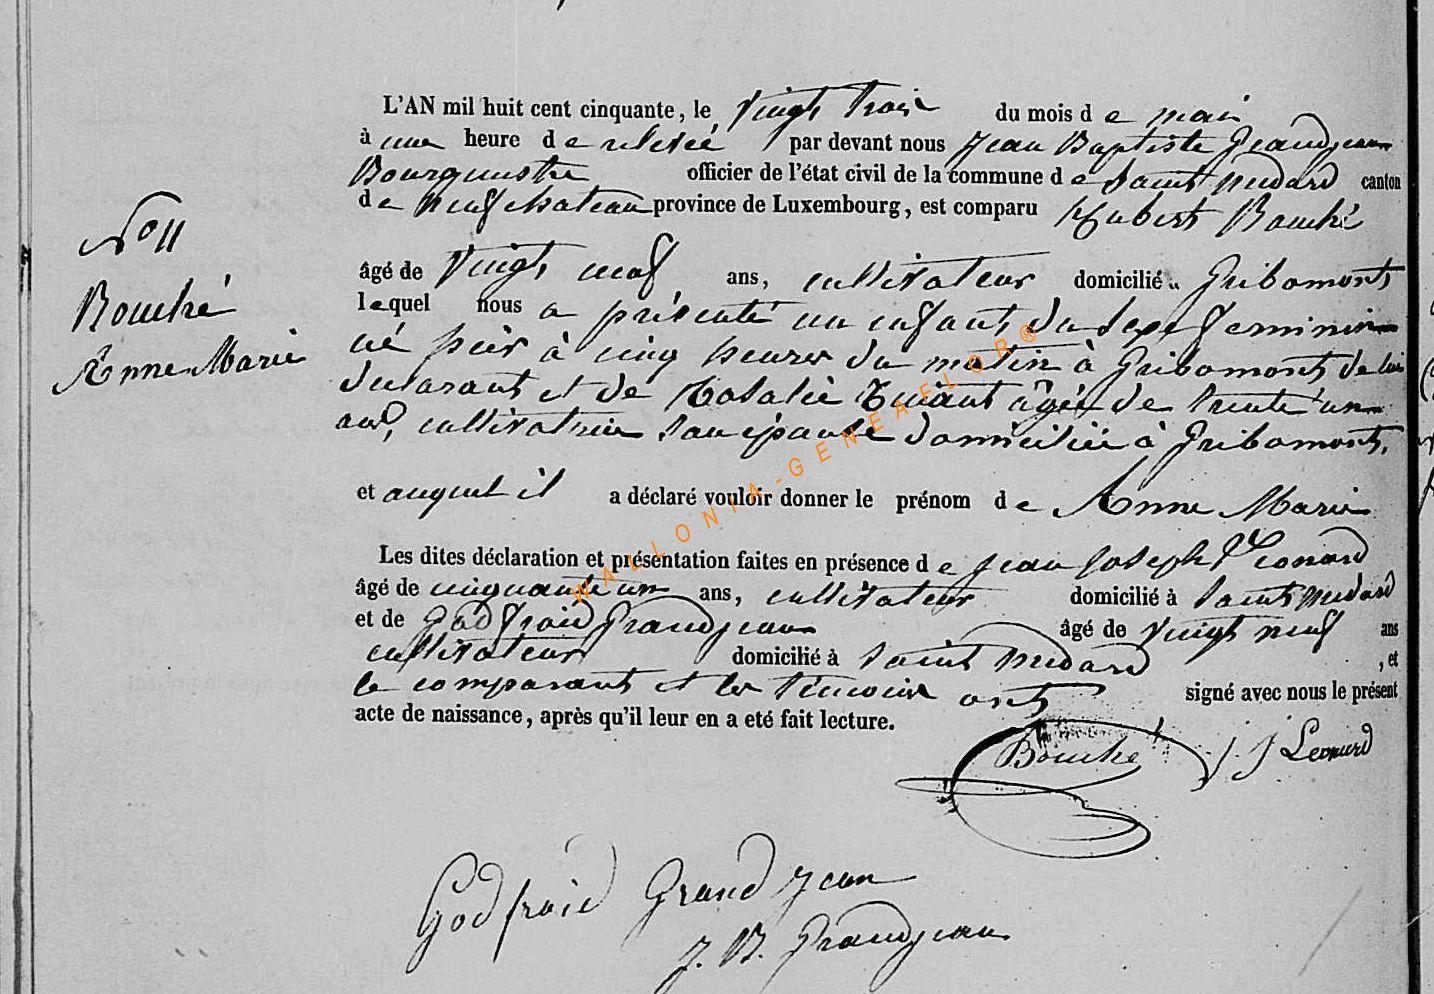 L'AN mil huit cent cinquante, le vingt trois du mois de mai
à une heure de relevée par devant nous Jean Baptiste Grandjean
Bourgmestre officier de l'état civil de la commune de Saint Médard canton
de Neufchateau province de Luxembourg, est comparu Hubert Bouché
N° 11
Bouché
Anne Marie
âgé de vingt neuf ans, cultivateur domicilié à Gribomont
lequel nous a présenté un enfant du sexe feminin
né hier à cinq heures du matin à Gribomont de lui
declarant et de Rosalie agée de trente un
ans, cultivatrice son épouse domiciliée à Gribomont,
et auquel il a déclaré vouloir donner le prénom de Anne Marie
Les dites déclaration et présentation faites en présence de Jean Joseph Leonard
âgé de cinquante un ans, cultivateur domicilié à Saint Médard
et de Godfroid Grandjean âgé de vingt neuf ans
cultivateur domicilié à Saint Médard , et
le comparant et les témoins ont signé avec nous le présent
acte de naissance, après qu'il leur en a eté fait lecture.
Bouché J J Leonard
Godfroid Grand jean
J. B. Grandjean
WALLONIA-GENEAFLOR®